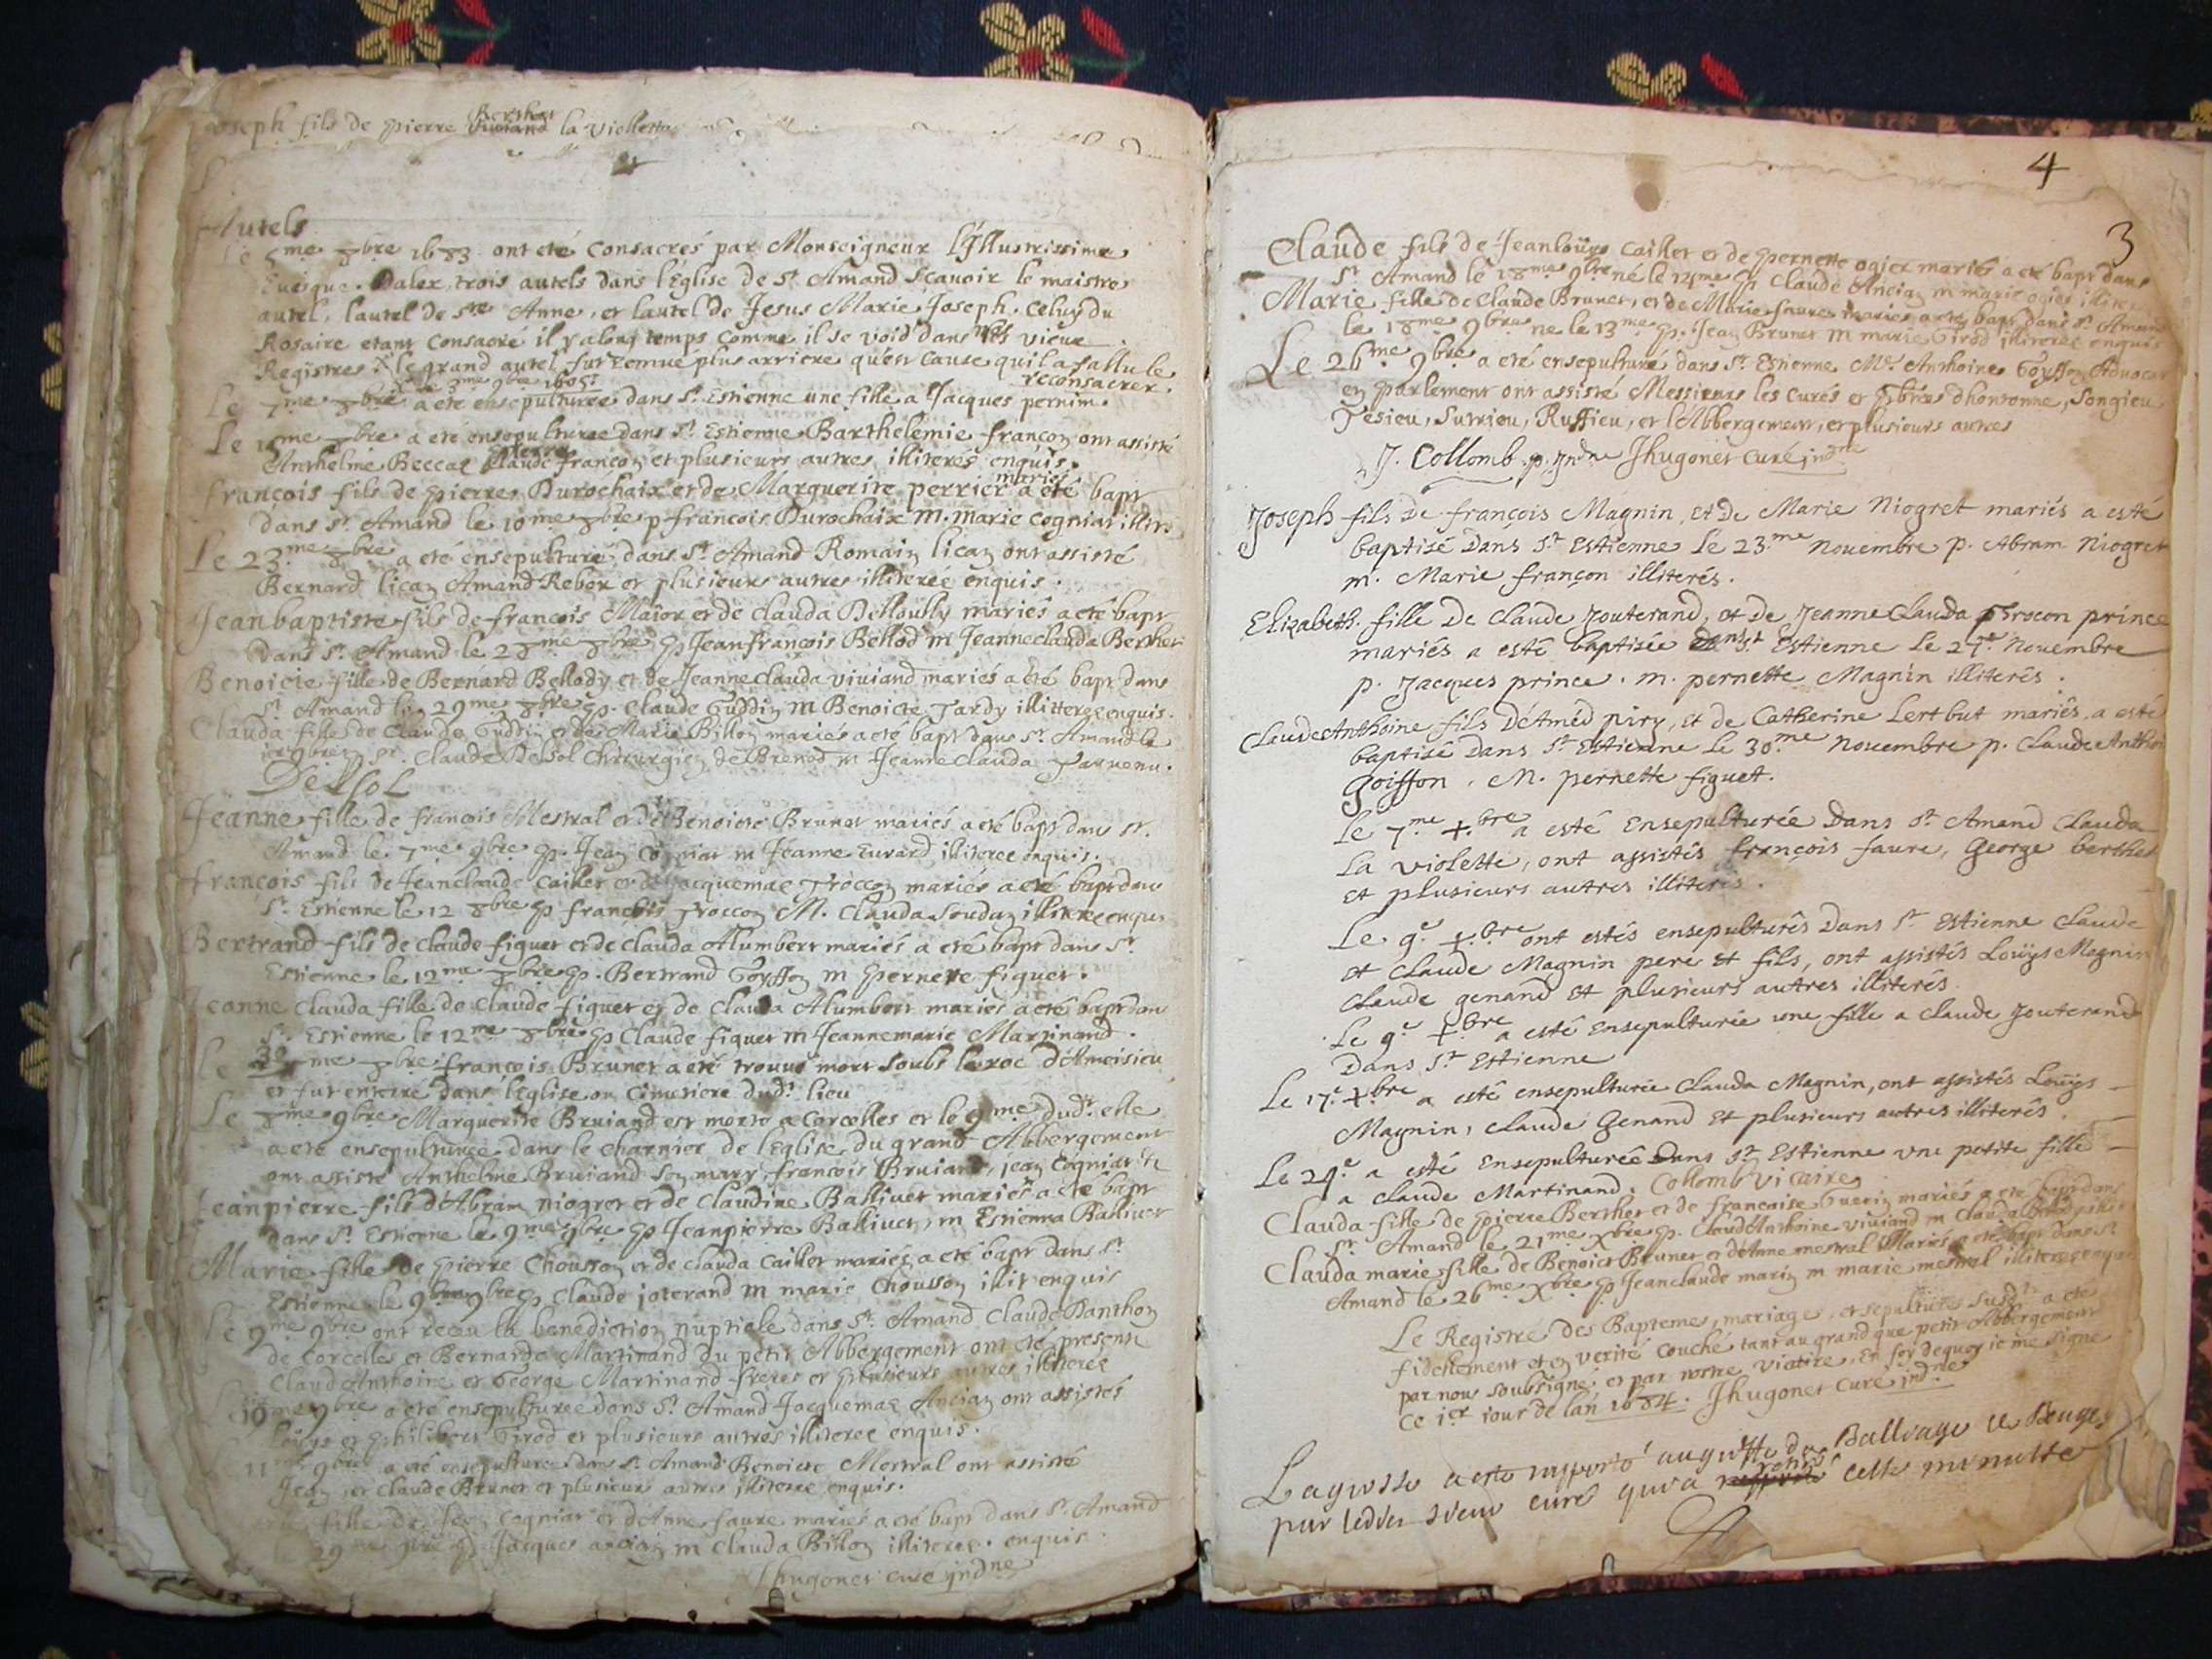 Joseph fils de pierre Berthet la Violette
Autels
Le 5me 8bre 1683 ont eté consacrés par Monseigneur L'Illustrissime
Euesque Dalex, trois autels dans l'Eglise de St Amand Scauoir le maistre
autel, l'autel de Ste Anne, et lautel de Jesus Marie Joseph. Celuy du
Rosaire etant consacré il y a long temps comme il se void dans nos vieux
Registres. le grand autel fut remué plus arriere qu'est cause quil a fallu le
reconsacrer.
Le 7me 8bre a eté ensepulturée dans St Estienne une fille a Jacques pernim.
Le 15me 8bre a eté ensepulturée dans St Estienne Barthelemie françon ont assisté
Anthelme Beccat Claude françon et plusieurs autres illiterés enquis.
françois fils de pierre Durochaix et de Marguerite perrier mariés a eté bapt
dans St Amand le 10me 8bre p francois Durochaix m. marie Cogniat illite
Le 23me 8bre a eté ensepulturé dans St Amand Romain lican ont assisté
Bernard lican Amand Rebor et plusieurs autres illiterée enquis.
Jeanbaptiste fils de francois Maior et de Clauda Bellouly mariés a eté bapt
dans St Amand le 28me 8bre p Jeanfrancois Bellod m Jeanneclauda Berthet
Benoicte fille de Bernard Bellody et de Jeanneclauda viuiand mariés a eté bapt dans
St Amand le 29me 8bre p. Claude Guddin m Benoicte Tardy illitterée enquis.
Clauda fille de Claude Guddin et de Marie Billon mariés a eté bapt dans St Amand le
9bre p Sr. Claude Delsol Chirurgien de Brenod m Jeanne Clauda Paruenu.
Delsol
Jeanne fille de francois Mestral et de Benoicte Brunet mariés a eté bapt dans St.
Amand le 7me 9bre p. Jean Cogniat m Jeanne Eurard illiteree enquis.
françois fils de Jeanclaude Caillet et de Jacquemae Troccon mariés a eté bapt dans
St Estienne le 12 8bre p francois Troccon M. Clauda Soudan illiteree enquis
Bertrand fils de Claude figuet et de Clauda Alumbert mariés a eté bapt dans St
Estienne le 12me 8bre p. Bertrand Goyffon m pernete figuet.
Jeanne Clauda fille de Claude figuet et de Clauda Alumbert mariés a eté bapt dans
St Estienne le 12me 8bre p Claude figuet m Jeannemarie Martinand.
Le 30me 8bre francois Brunet a eté trouué mort soubs le roc d'Ameisieu
et fut enterré dans l'Eglise ou Cimetiere dudt lieu
Le 8me 9bre Marguerite Bruiand est morte a Corcelles et le 9me dudt elle
a eté ensepulturée dans le charnier de l'Eglise du grand Abbergement
ont assisté Anthelme Bruiand son mary, francois Bruiand, jean Cogniat
Jeanpierre fils d'Abram niogret et de Claudine Balliuet mariés a eté bapt
dans St. Estienne le 9me 9bre p Jeanpierre Balliuet, m Estienna Balliuet
Marie fille de pierre Chousson et de Clauda Caillet mariés a eté bapt dans St
Estienne le 9bre p Claude joterand m marie Chousson illit enquis
Le 9me 9bre ont receu la benediction nuptiale dans St. Amand Claude Danthon
de Corcelles et Bernarde Martinand du petit Abbergement ont eté presents
Claud'Anthoine et George Martinand freres et plusieurs autres illiteree
Le 10me 9bre a eté ensepulturée dans St. Amand Jacquemae Ancian ont assistés
Loüys et philibert Girod et plusieurs autres illiteree enquis.
11me 9bre a eté ensepulturée dans St. Amand Benoicte Mestral ont assisté
Jean et Claude Brunet et plusieurs autres illiteree enquis.
fille de Jean Cogniat et d'Anne faure mariés a eté bapt dans St. Amand
29me 9bre p. Jacques ancian m Clauda Billon illiteree. enquis.
Jhugonet cure jndne
4
3
Claude fils de Jeanloüys Caillet et de pernette ogier mariés a eté bapt dans
St Amand le 18me 9bre né le 14me p Claude Ancian m marie ogier illite
Marie fille de Claude Brunet, et de Marie faure mariés a eté bapt dans St Amand
le 18me 9bre né le 13me p. Jean Brunet m marie Girod illiteree enquis
Le 26me 9bre a eté ensepulturé dans St. Estienne Mr. Anthoine Goyffon Aduocat
en parlement ont assisté Messieurs les Curés et pbres dhotonne, Songieu
Jesieu, Sutrieu, Ruffieu, et l'Abbergement, et plusieurs autres
J. Collomb. p. jndne Jhugonet curé jndne
Joseph fils De françois Magnin, et De Marie Niogret mariés a esté
baptisé Dans St Estienne Le 23.me Nouembre p. Abram Niogret
m. Marie françon illiterés.
Elizabeth. fille De Claude Jouterand, et de Jeanne Clauda Trocon prince
mariés a esté baptisée dans St Estienne Le 27e. Nouembre
p. Jacques prince. m. pernette Magnin illiterés.
Claude Anthoine fils D'Améd piry, et de Catherine Lertbut mariés, a esté
baptisé Dans St Estienne Le 30.me Nouembre p. Claude Antho
Goiffon. M. pernette figuet.
Le 7.me +.bre a esté Ensepulturée Dans St Amand Clauda
La Violette, ont assistés françois faure, George berthet
et plusieurs autres illiterés.
Le 9e +.bre ont estés ensepulturés Dans St Estienne Claude
et Claude Magnin pere et fils, ont assistés Loüys Magnin
Claude genand et plusieurs autres illiterés.
Le 9e +bre a esté Ensepulturée une fille a Claude Jouterand
Dans St Estienne
Le 17e. +bre a esté ensepulturée Clauda Magnin, ont assistés Loüys
Magnin, Claude Genand et plusieurs autres illiterés.
Le 29e a esté Ensepulturée Dans St Estienne une petite fille
a Claude Martinand. Collomb Vicaire
Clauda fille de pierre Berthet et de francoise Guerin mariés a eté bapt dans
St Amand le 21me Xbre p. Claud'Anthoine viuiand m Clauda
Clauda marie fille de Benoict Brunet et d'Anne mestral Mariés a eté bapt dans St
Amand le 26me Xbre p Jeanclaude marin m marie mestral illiteree enquis
Le Registre des Baptemes, mariages, et sepultures susdts a eté
fidelement et en verité couché tant au grand que petit Abbergement
par nous soubsigné, et par nostre viccire, En foy dequoy je me signe
Ce 1er iour de lan 1684. Jhugonet curé jndne
Lagrosse a esté rapporté au greffe du Balliage de Beugey
par ledit sieur curé qui a retiré cette minutte